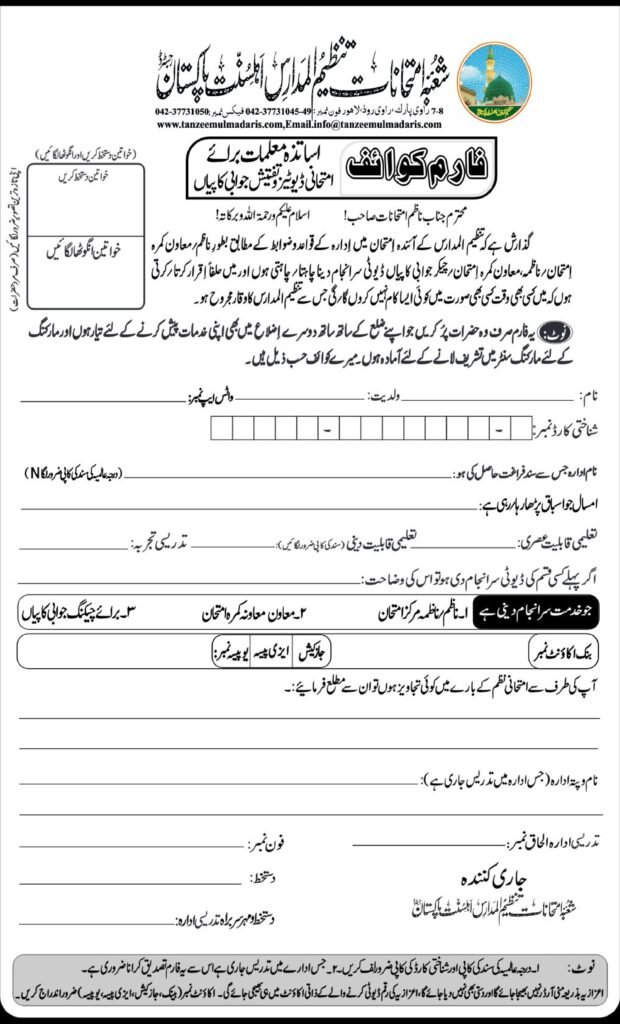 شعبہ امتحانات تنظیم المدارس اہلسنت پاکستان رجسٹرڈ
7-8 راوی پارک، راوی روڈ، لاہور فون نمبر: 49-042-37731045 فیکس نمبر: 042-37731050
www.tanzeemulmadaris.com,Email.info@tanzeemulmadaris.com
فارم کوائف
اساتذہ معلمات برائے
امتحانی ڈیوٹیز و تفتیش جوابی کاپیاں
(خواتین دستخط کریں اور انگوٹھا لگائیں)
خواتین دستخط کریں
خواتین انگوٹھا لگائیں
اپنی تازہ ترین تصویر ضرور لگائیں (صرف مرد حضرات)
محترم جناب ناظم امتحانات صاحب! السلام علیکم ورحمۃ اللہ وبرکاتہ!
گذارش ہے کہ تنظیم المدارس کے آئندہ امتحان میں ادارہ کے قواعد و ضوابط کے مطابق بطور ناظم/معاون کمرہ
امتحان/ناظمہ، معاونہ کمرہ امتحان/چیکر جوابی کاپیاں ڈیوٹی سرانجام دینا چاہتا/چاہتی ہوں اور میں حلفاً اقرار کرتا/کرتی
ہوں کہ میں کسی بھی وقت کسی بھی صورت میں کوئی ایسا کام نہیں کروں گا/گی جس سے تنظیم المدارس کا وقار مجروح ہو۔
نوٹ: یہ فارم صرف وہ حضرات پُر کریں جو اپنے ضلع کے ساتھ ساتھ دوسرے اضلاع میں بھی اپنی خدمات پیش کرنے کے لئے تیار ہوں اور مارکنگ
کے لئے مارکنگ سنٹر میں تشریف لانے کے لئے آمادہ ہوں۔ میرے کوائف حسب ذیل ہیں۔
نام: ولدیت: واٹس ایپ نمبر:
شناختی کارڈ نمبر: - -
نام ادارہ جس سے سند فراغت حاصل کی ہو: (درجہ عالمیہ کی سند کی کاپی ضرور لگاN)
امسال جو اسباق پڑھا رہا/رہی ہے:
تعلیمی قابلیت عصری: تعلیمی قابلیت دینی (سند کی کاپی ضرور لگائیں): تدریسی تجربہ:
اگر پہلے کسی قسم کی ڈیوٹی سرانجام دی ہو تو اس کی وضاحت:
جو خدمت سرانجام دینی ہے ۱۔ناظم/ناظمہ مرکز امتحان ۲۔معاون معاونہ کمرہ امتحان ۳۔برائے چیکنگ جوابی کاپیاں
بنک اکاؤنٹ نمبر جاز کیش ایزی پیسہ یو پیسہ نمبر:
آپ کی طرف سے امتحانی نظم کے بارے میں کوئی تجاویز ہوں تو ان سے مطلع فرمائیے:۔
نام و پتہ ادارہ (جس ادارہ میں تدریس جاری ہے):
تدریسی ادارہ الحاق نمبر: فون نمبر:
جاری کنندہ دستخط:
شعبہ امتحانات تنظیم المدارس اہلسنت پاکستان
دستخط و مہر سربراہ تدریسی ادارہ:
نوٹ: ۱۔درجہ عالمیہ کی سند کی کاپی اور شناختی کارڈ کی کاپی ضرور لف کریں۔ ۲۔جس ادارے میں تدریس جاری ہے اس سے یہ فارم تصدیق کرانا ضروری ہے۔
اعزازیہ بذریعہ منی آرڈر نہیں بھیجا جائے گا اور دستی بھی نہیں دیا جائے گا، اعزازیہ کی رقم ڈیوٹی کرنے والے کے ذاتی اکاؤنٹ میں ہی بھیجی جائے گی۔ اکاؤنٹ نمبر (بینک، جاز کیش، ایزی پیسہ، یو پیسہ) ضرور اندراج کریں۔